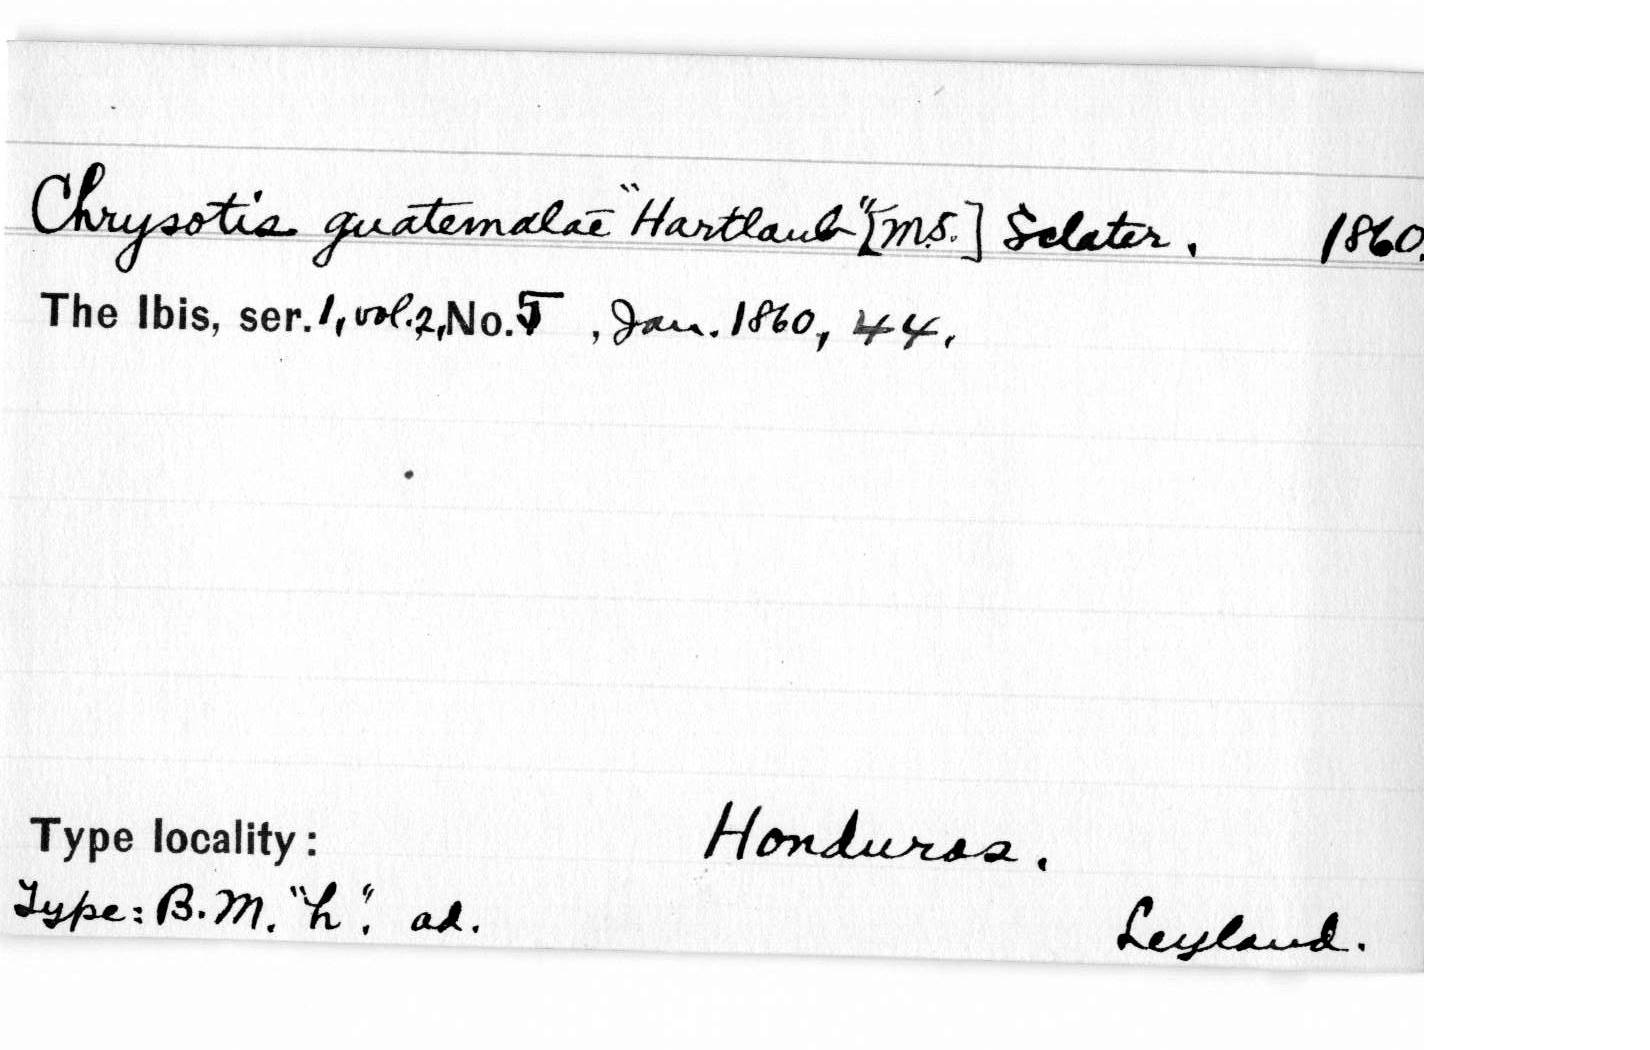 Chrysotis guatemalae "Hartlaub" [MS.] Sclater. 1860.
The Ibis, ser. 1, vol. 2, No. 5, Jan. 1860, 44.
Type locality: Honduras.
Type: B.M. "h". ad. Leyland.